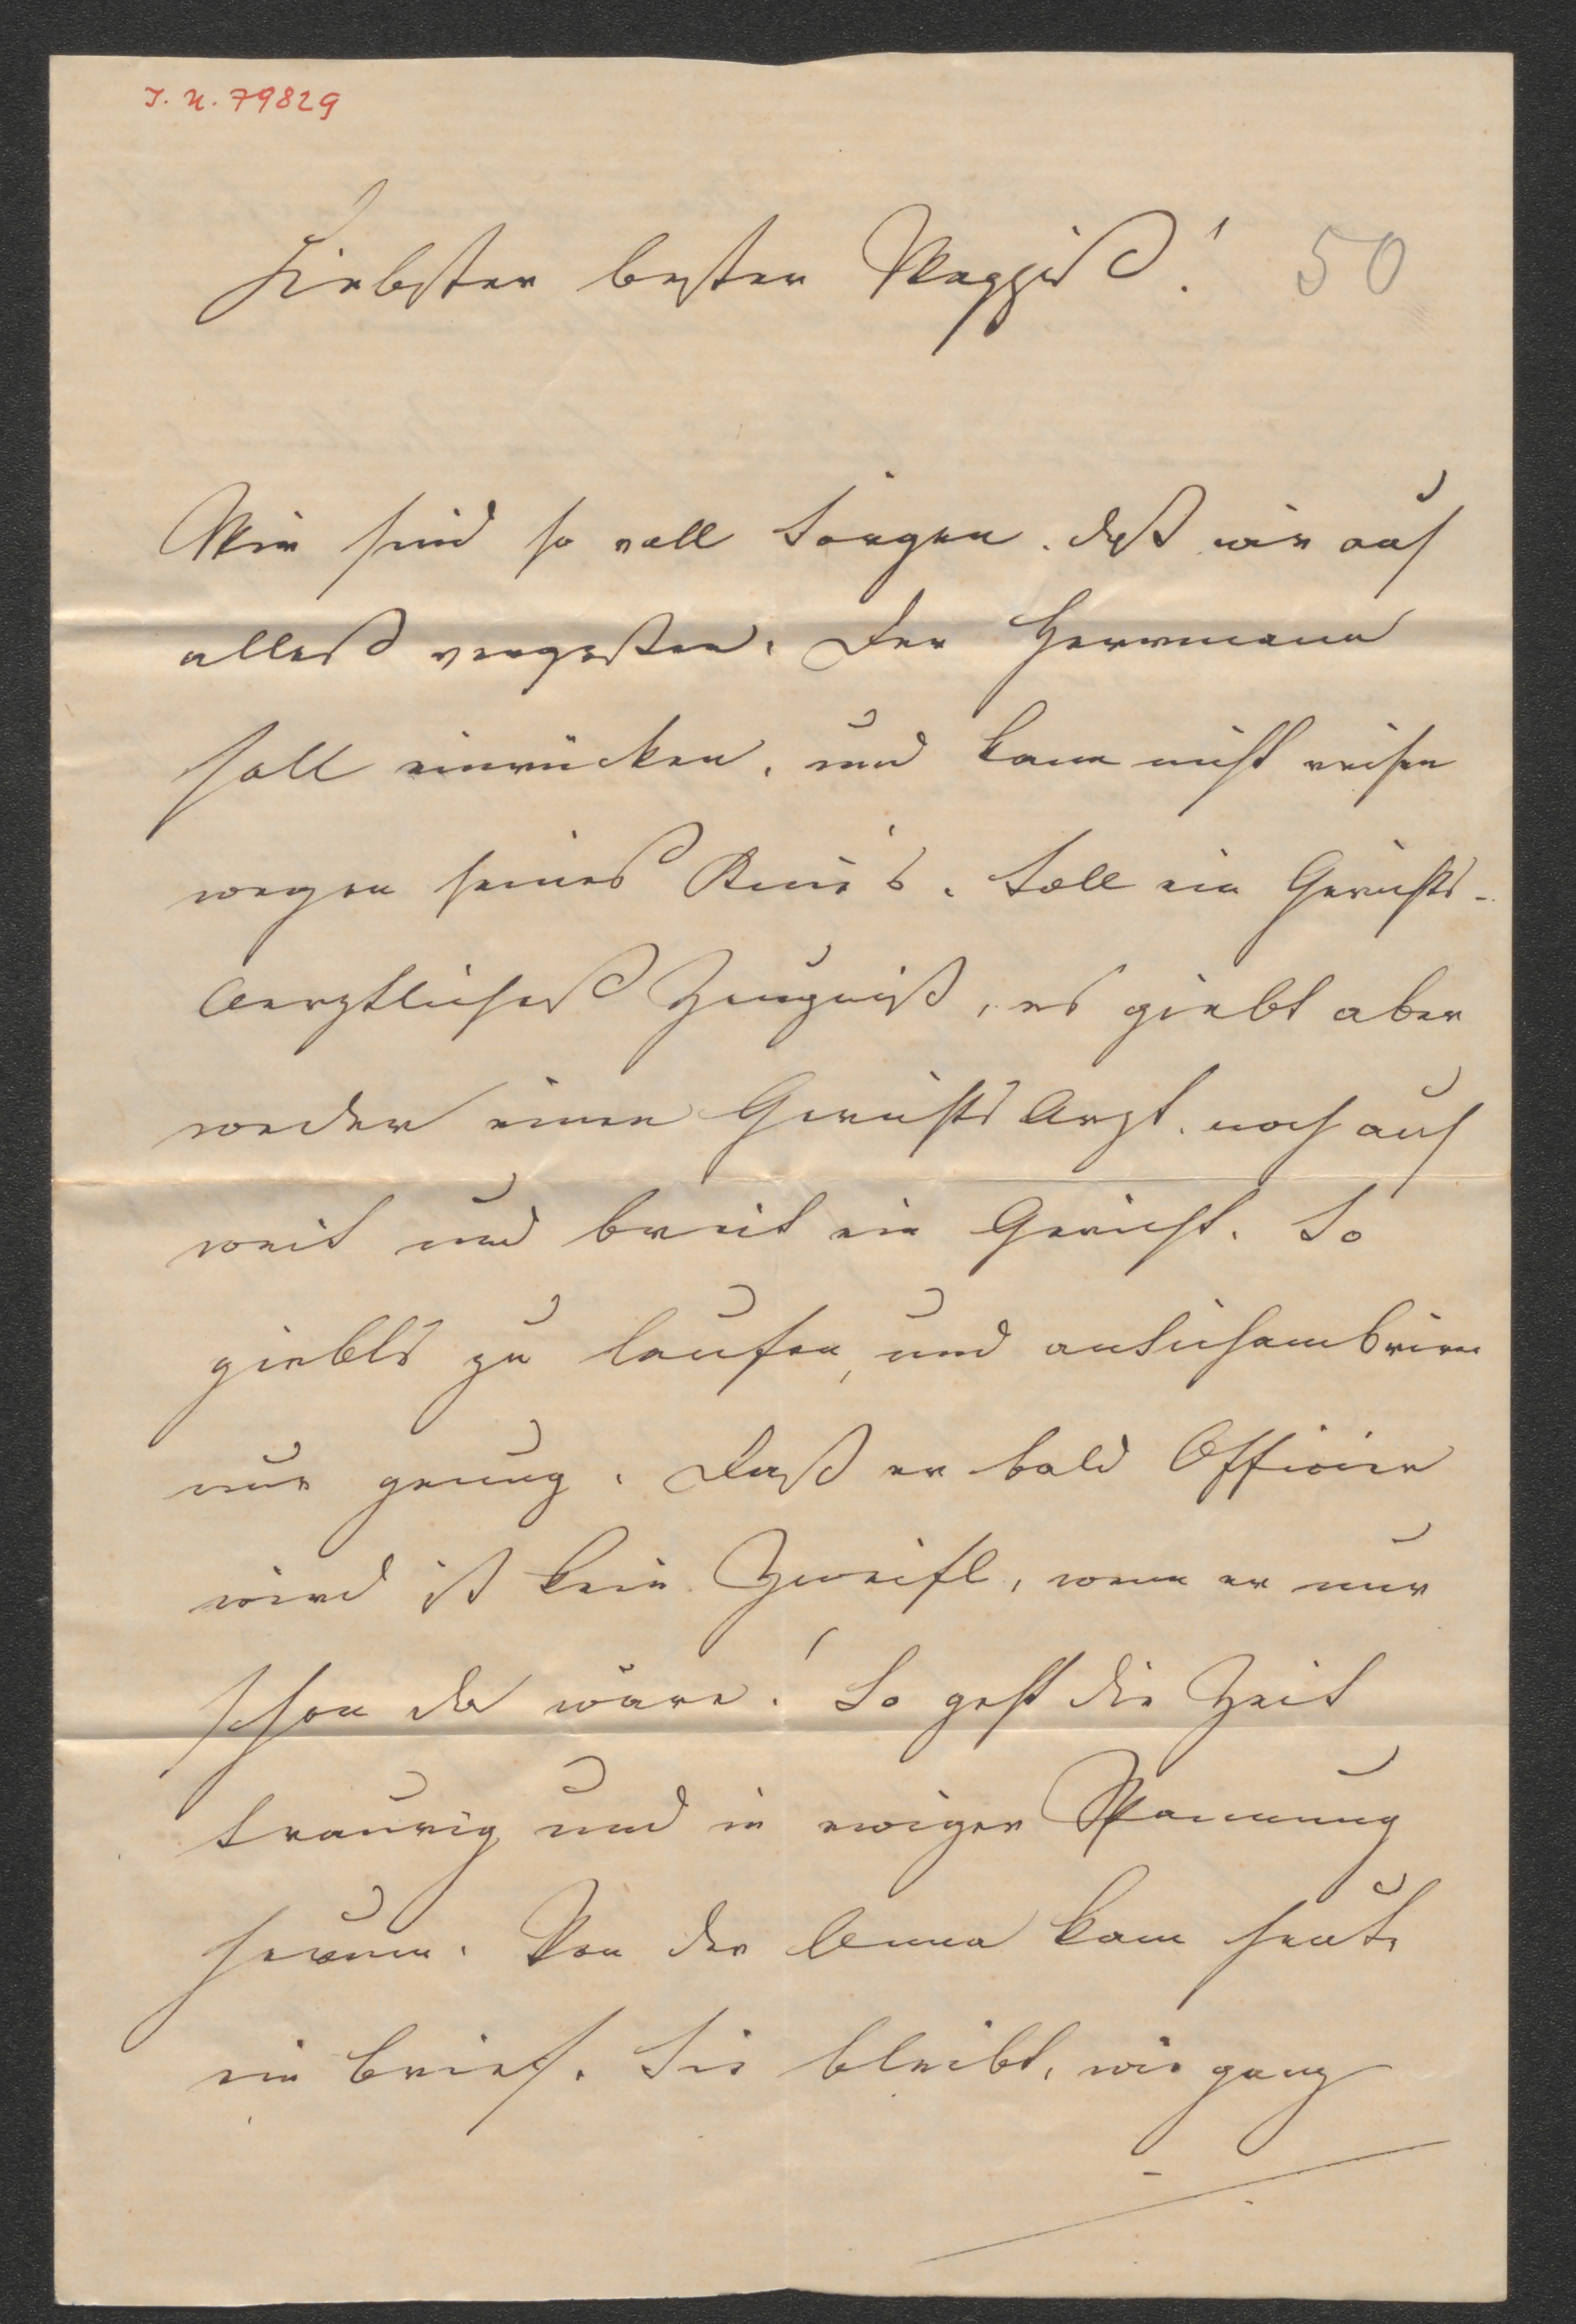 I. N. 79829
Liebster bester
50
Wir sind so voll Sorgen. daß wir auf
alleß vergeßen. Der Herrmann
soll einrücken, und kann nicht reisen
wegen seines Knie's. Soll ein Gerichts-
Aerztliches Zeugniß, es giebt aber
weder einen Gerichts Arzt. noch auf
weit und breit ein Gericht. So
giebts zu laufen, und antichambrirn
nur genug. Daß er bald Officier
wird ist kein Zweifl, wenn er nur
schon da wäre! So geht die Zeit
traurig und in ewiger Spannung
herum. Von der Anna kam heute
ein Brief. Sie bleibt, wie ganz